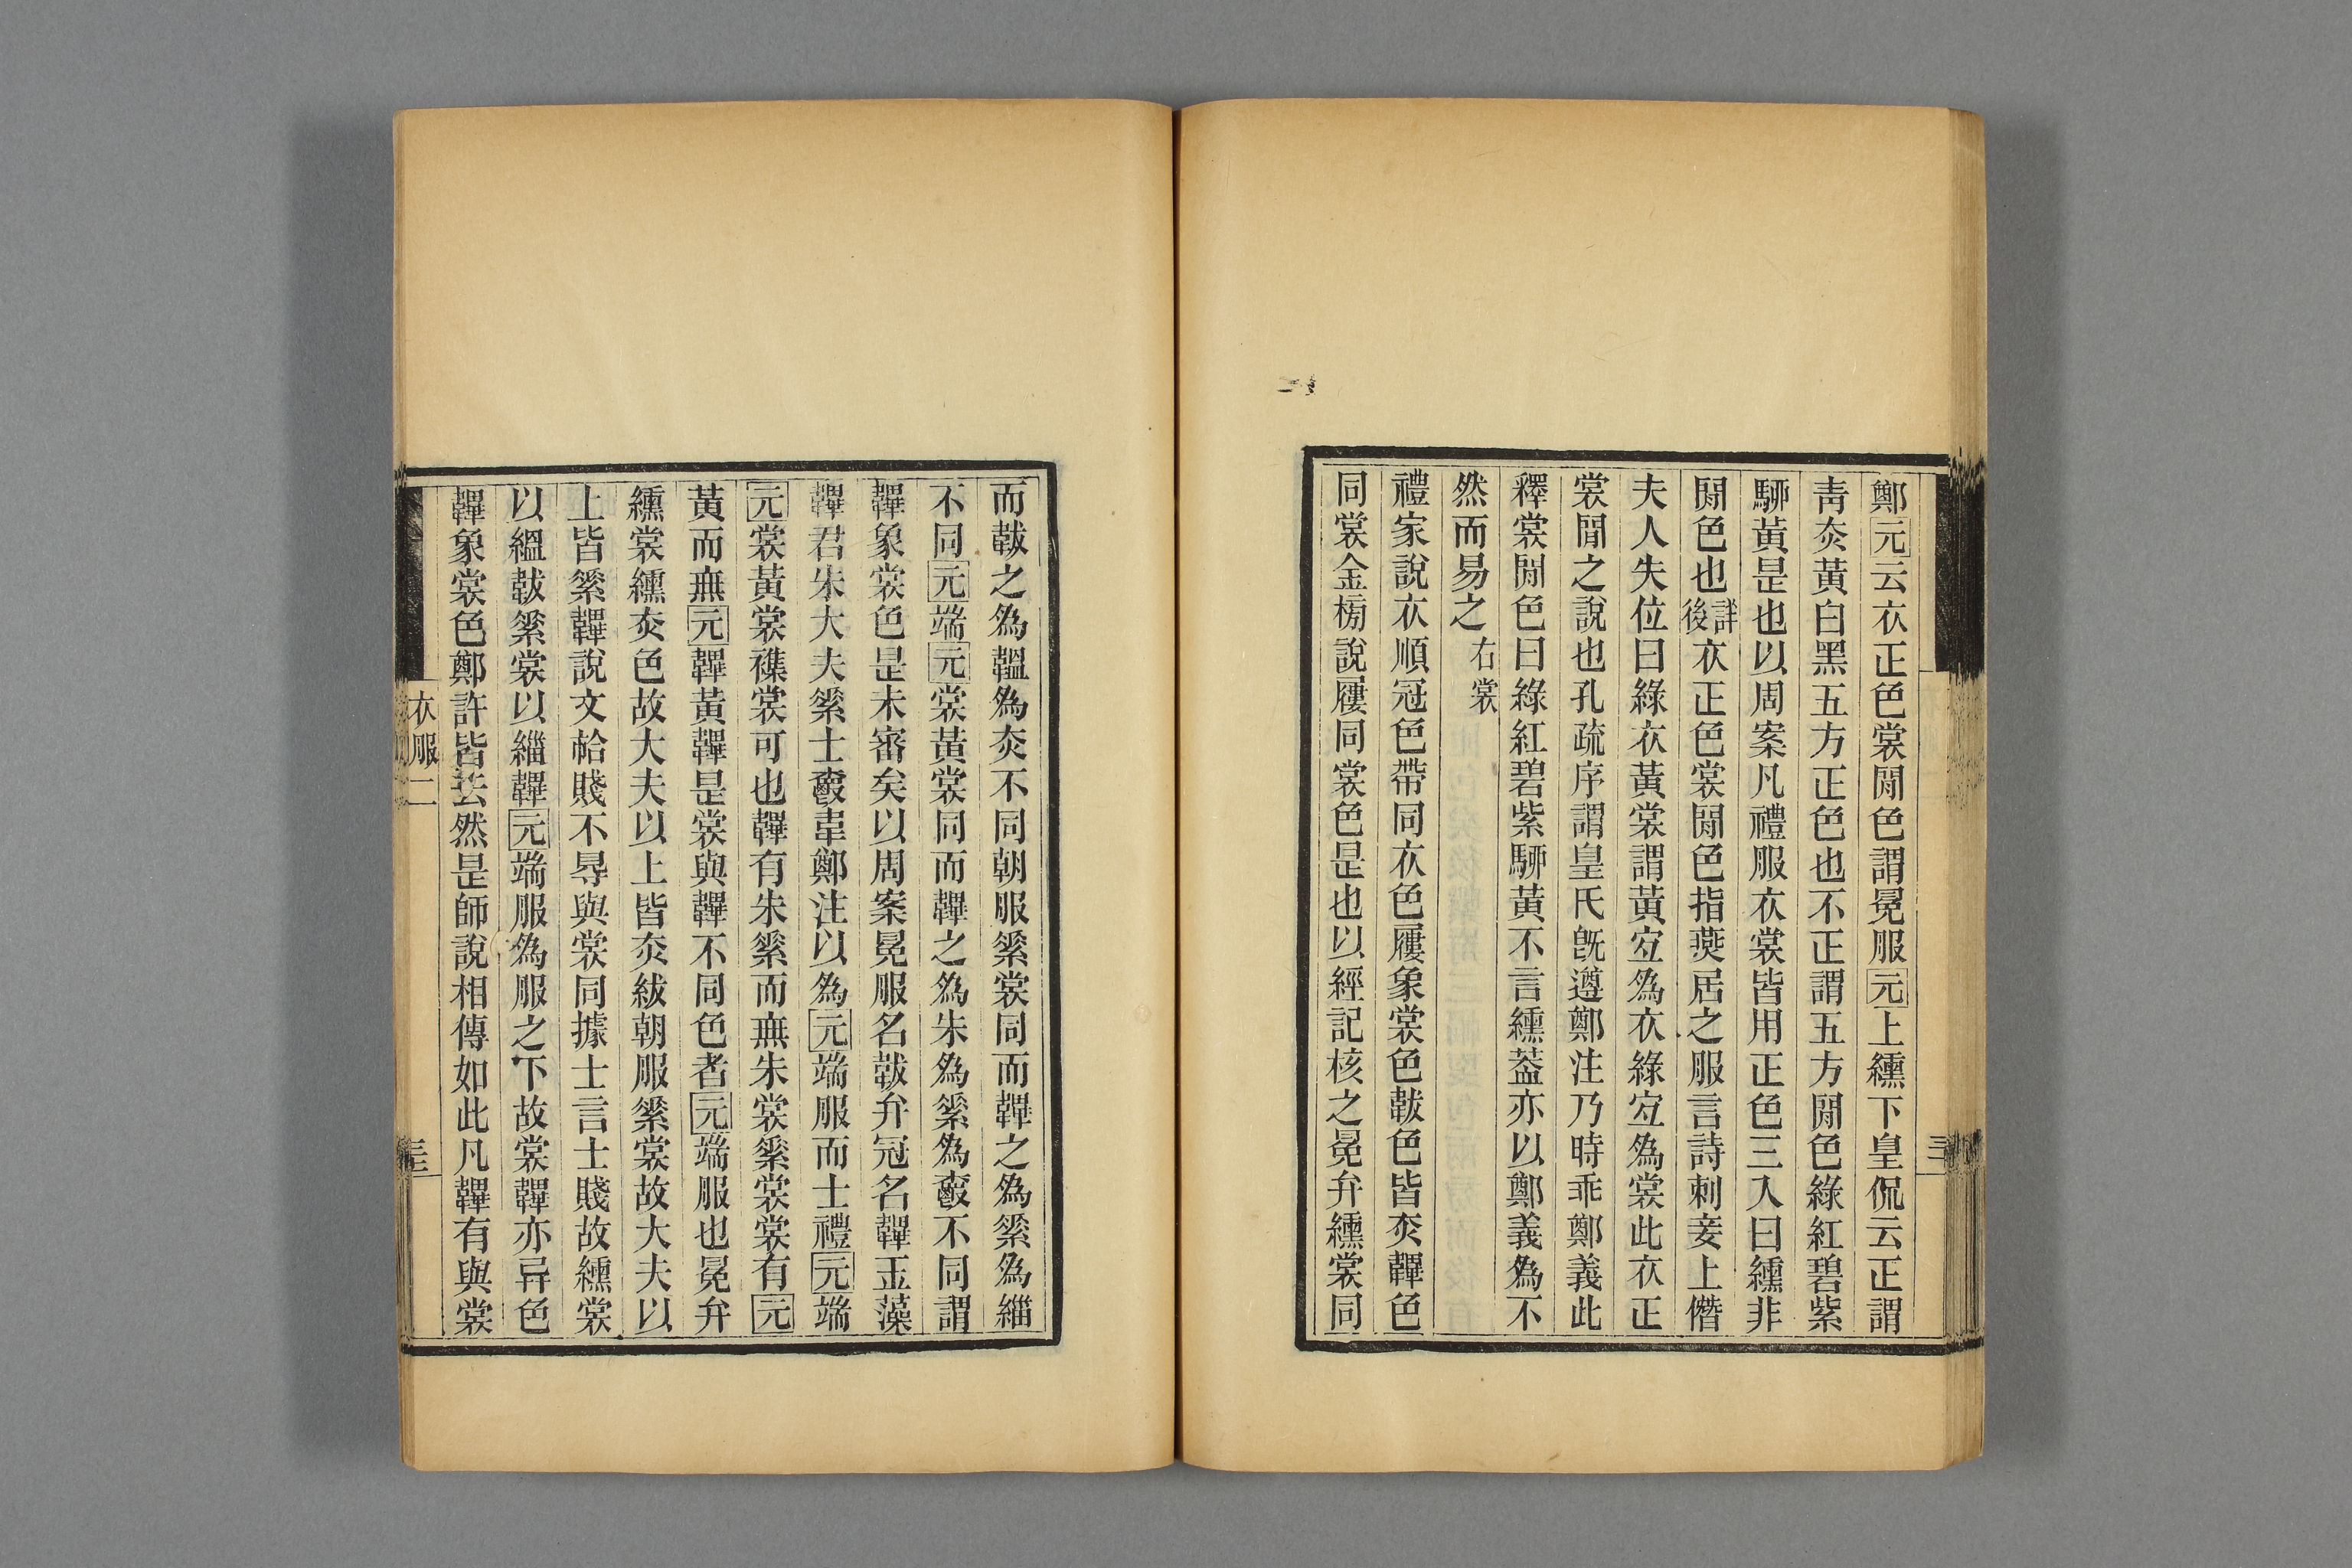 鄭元云衣正色裳閒色謂冕服元上纁下皇侃云正謂
靑炗黃白黑五方正色也不正謂五方閒色綠紅碧紫
駵黃是也以周案凡禮服衣裳皆用正色三入曰纁非
閒色也詳後衣正色裳閒色指燕居之服言詩刺妾上僭
夫人失位曰綠衣黃裳謂黃宐爲衣綠宐爲裳此衣正
裳閒之說也孔疏序謂皇氏旣遵鄭注乃時乖鄭義此
釋裳閒色曰綠紅碧紫駵黃不言纁葢亦以鄭義爲不
然而易之右裳
禮家說衣順冠色帶同衣色屨象裳色韍色皆炗韠色
同裳金榜說屨同裳色是也以經記核之冕弁纁裳同
三
而韍之爲韞爲炗不同朝服䋤裳同而韠之爲䋤爲緇
不同元端元裳黃裳同而韠之爲朱爲䋤爲𩏑不同謂
韠象裳色是未審矣以周案冕服名韍弁冠名韠玉藻
韠君朱大夫䋤士𩏑韋鄭注以爲元端服而士禮元端
元裳黃裳襍裳可也韠有朱䋤而無朱裳䋤裳裳有元
黃而無元韠黃韠是裳與韠不同色者元端服也冕弁
纁裳纁炗色故大夫以上皆炗紱朝服䋤裳故大夫以
上皆䋤韠說文帢賤不㝵與裳同據士言士賤故纁裳
以縕韍䋤裳以緇韠元端服爲服之下故裳韠亦异色
韠象裳色鄭許皆云然是師說相傳如此凡韠有與裳
衣服二
三